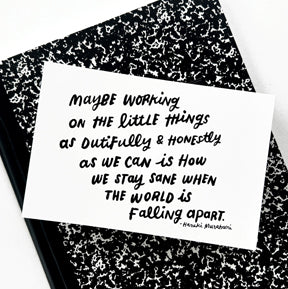 MAYBE WORKING
ON THE little THINGS
AS DUTIFULLY & HONESTLY
AS WE CAN is HOW
WE STAY SANE WHEN
THE WORLD is
FALLING APART.
- Haruki Murakami